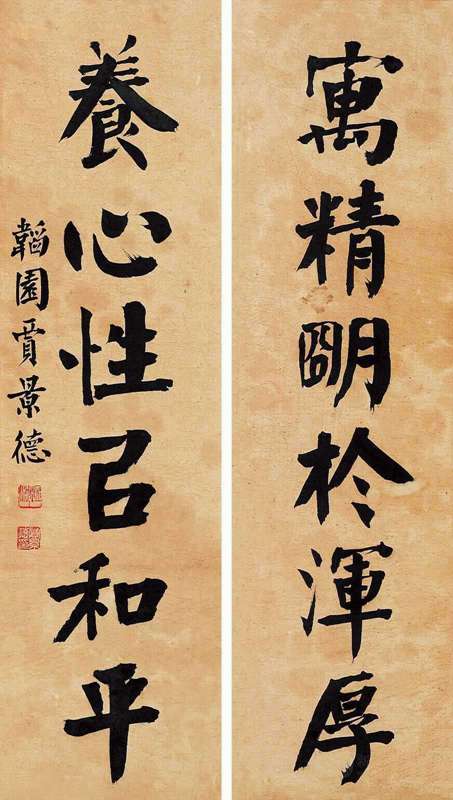 寓精朙於渾厚
養心性㠯和平
韜園賈景德